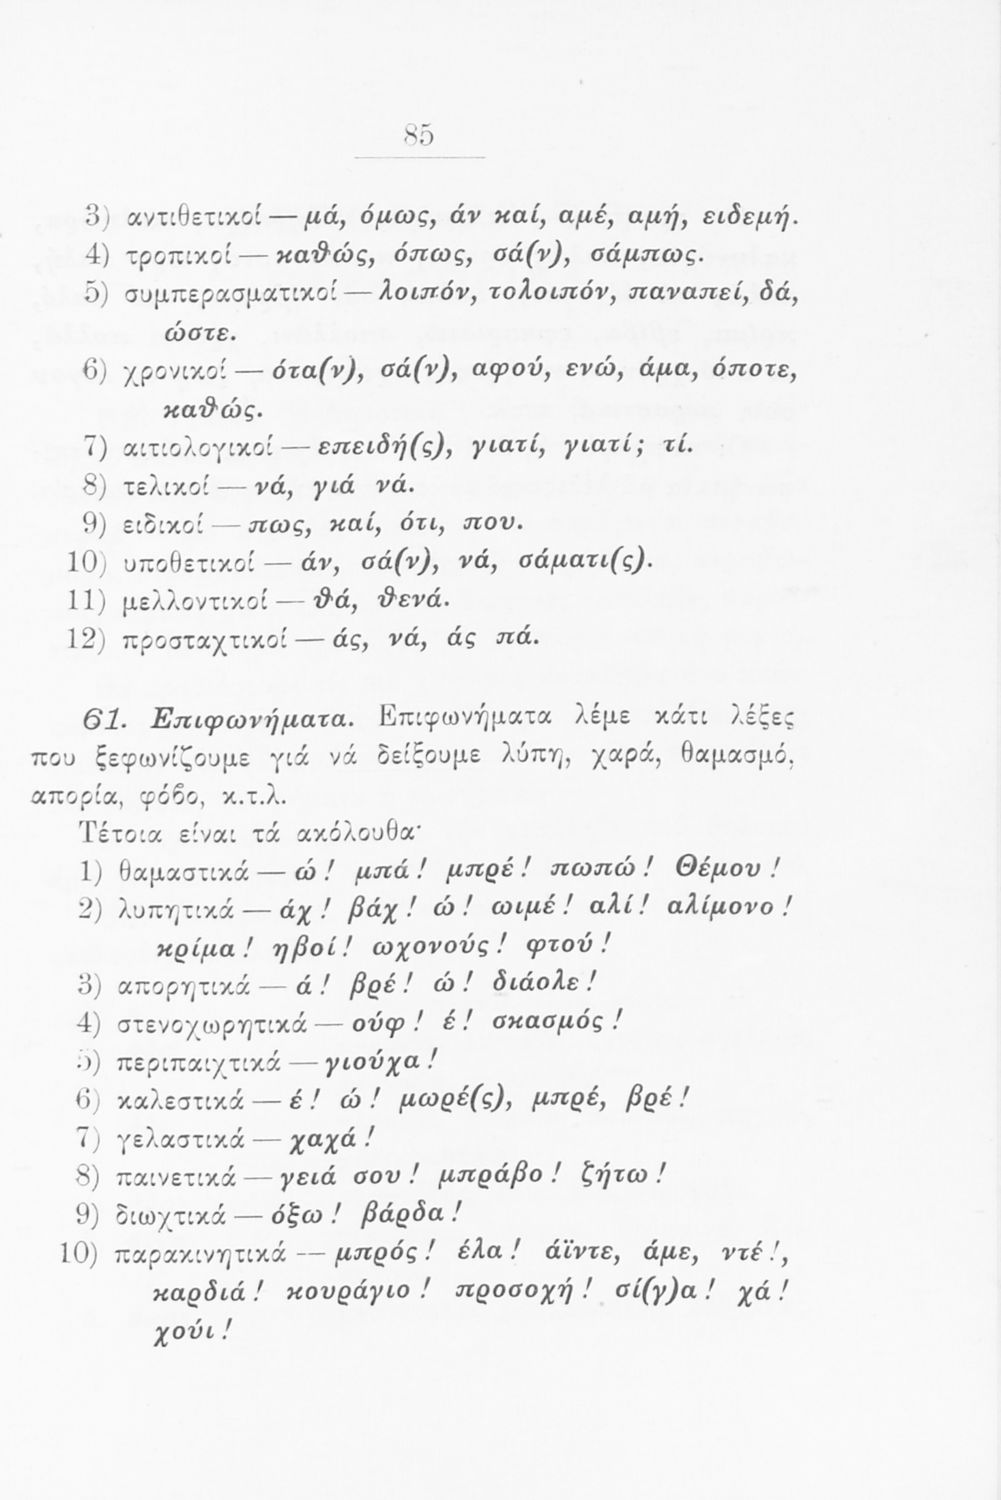 85
3) αντιθετικοί — μά, όμως, άν καί, αμέ, αμή, ειδεμή.
4) τροπικοί — καθώς, όπως, σά(ν), σάμπως.
5) συμπερασματικοί — λοιπόν, τολοιπόν, παναπεί, δά,
ώστε.
6) χρονικοί — ότα(ν), σά(ν), αφού, ενώ, άμα, όποτε,
καθώς.
7) αιτιολογικοί — επειδή(ς), γιατί, γιατί; τί.
8) τελικοί — νά, γιά νά.
9) ειδικοί — πως, καί, ότι, που.
10) υποθετικοί — άν, σά(ν), νά, σάματι(ς).
11) μελλοντικοί — θά, θενά.
12) προσταχτικοί — άς, νά, άς πά.
61. Επιφωνήματα. Επιφωνήματα λέμε κάτι λέξες
που ξεφωνίζουμε γιά νά δείξουμε λύπη, χαρά, θαμασμό,
απορία, φόβο, κ.τ.λ.
Τέτοια είναι τά ακόλουθα·
1) θαμαστικά — ώ! μπά! μπρέ! πωπώ! Θέμου!
2) λυπητικά — άχ! βάχ! ώ! ωιμέ! αλί! αλίμονο!
κρίμα! ηβοί! ωχονούς! φτού!
3) απορητικά — ά! βρέ! ώ! διάολε!
4) στενοχωρητικά — ούφ! έ! σκασμός!
5) περιπαιχτικά — γιούχα!
6) καλεστικά — έ! ώ! μωρέ(ς), μπρέ, βρέ!
7) γελαστικά — χαχά!
8) παινετικά — γειά σου! μπράβο! ζήτω!
9) διωχτικά — όξω! βάρδα!
10) παρακινητικά — μπρός! έλα! άϊντε, άμε, ντέ!,
καρδιά! κουράγιο! προσοχή! σί(γ)α! χά!
χούι!